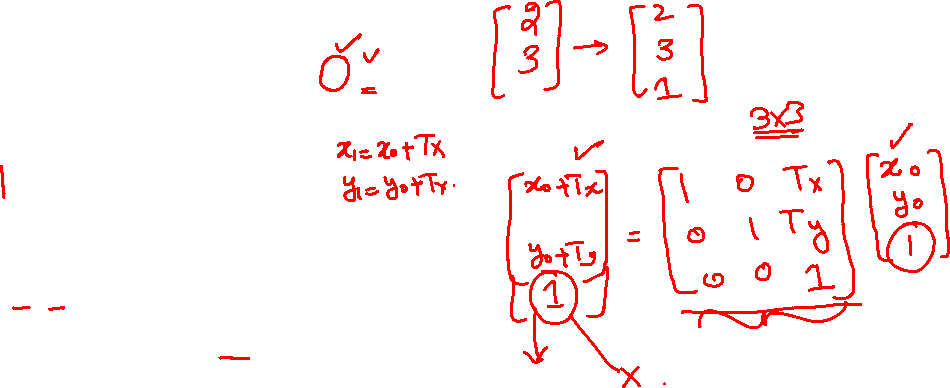 0 ✓ ✓ =
[2 3] → [2 3 1]
3x3
x₁ = x₀ + Tx
y₁ = y₀ + Ty.
[x₀+Tx y₀+Ty 1] = [1 0 Tx 0 1 Ty 0 0 1] [x₀ y₀ 1]
x .